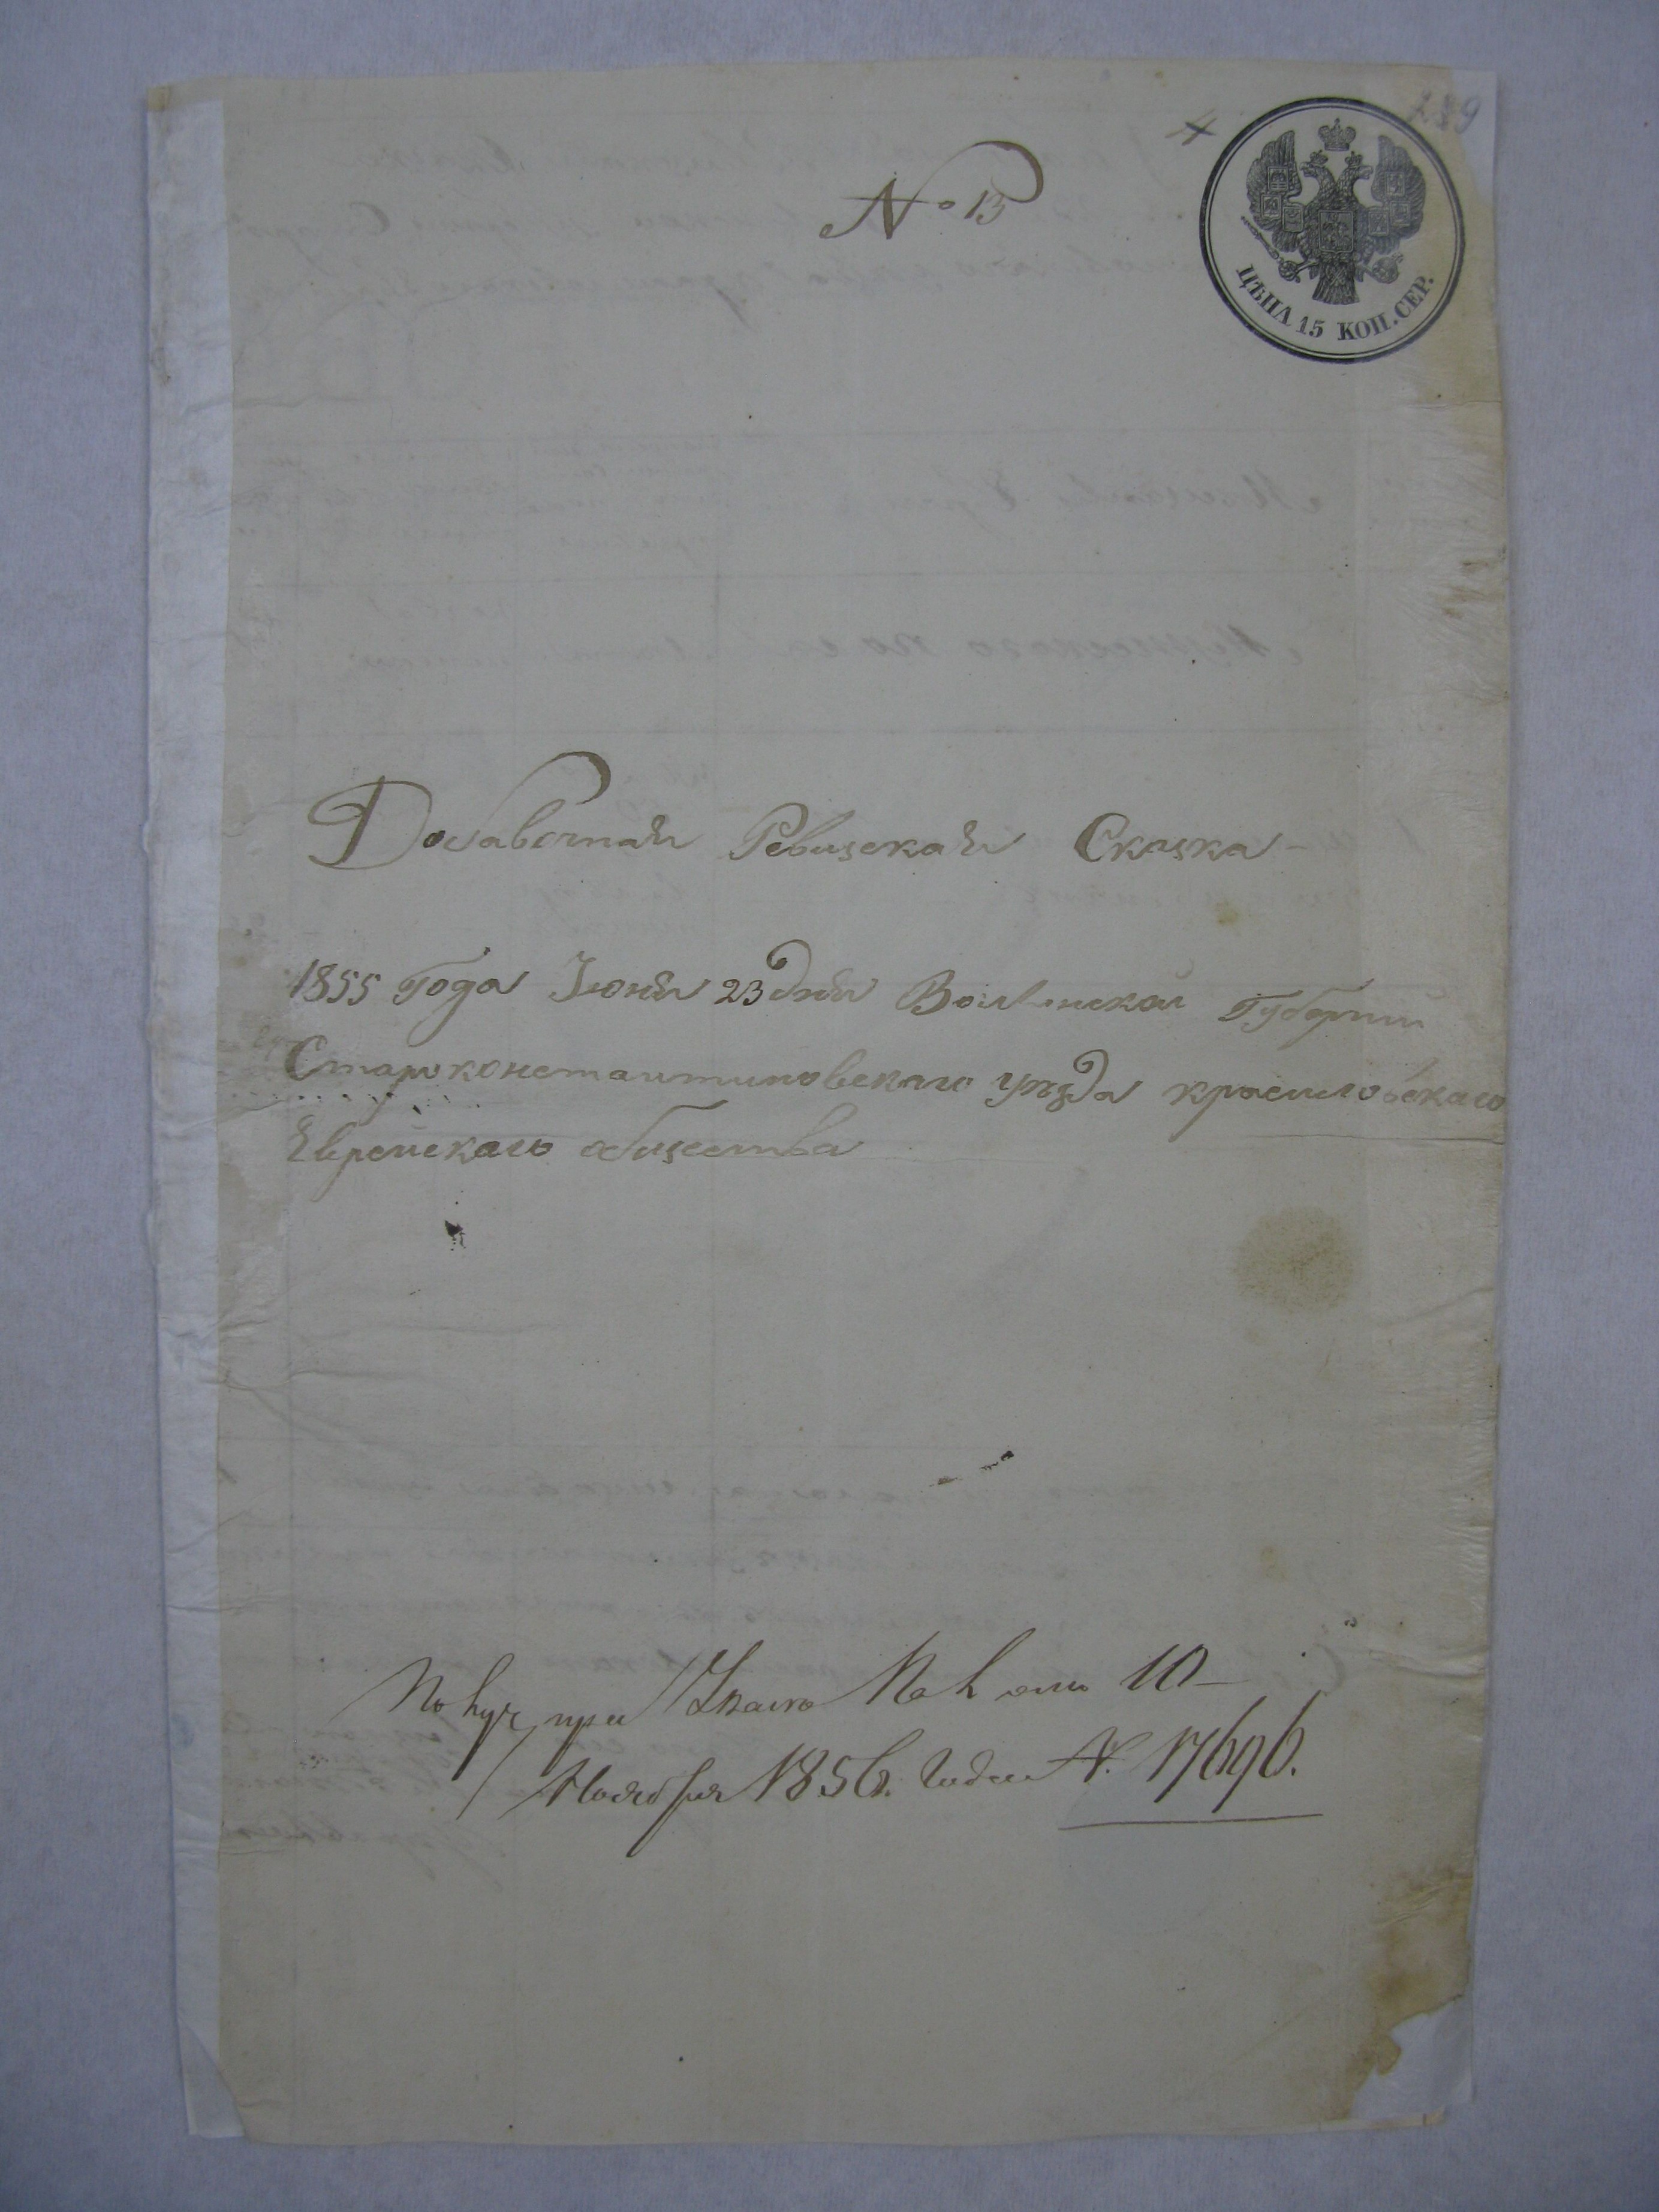 289
№ 13
ЦѢНА 15 КОП. СЕР.
Добавочная Ревизская Сказка
1855 Года Июня 23 дня Волынской Губернии
Староконстантиновского уезда красиловского
Еврейскаго общества
При Указе от 10
Ноября 1856. Года №. 17696.